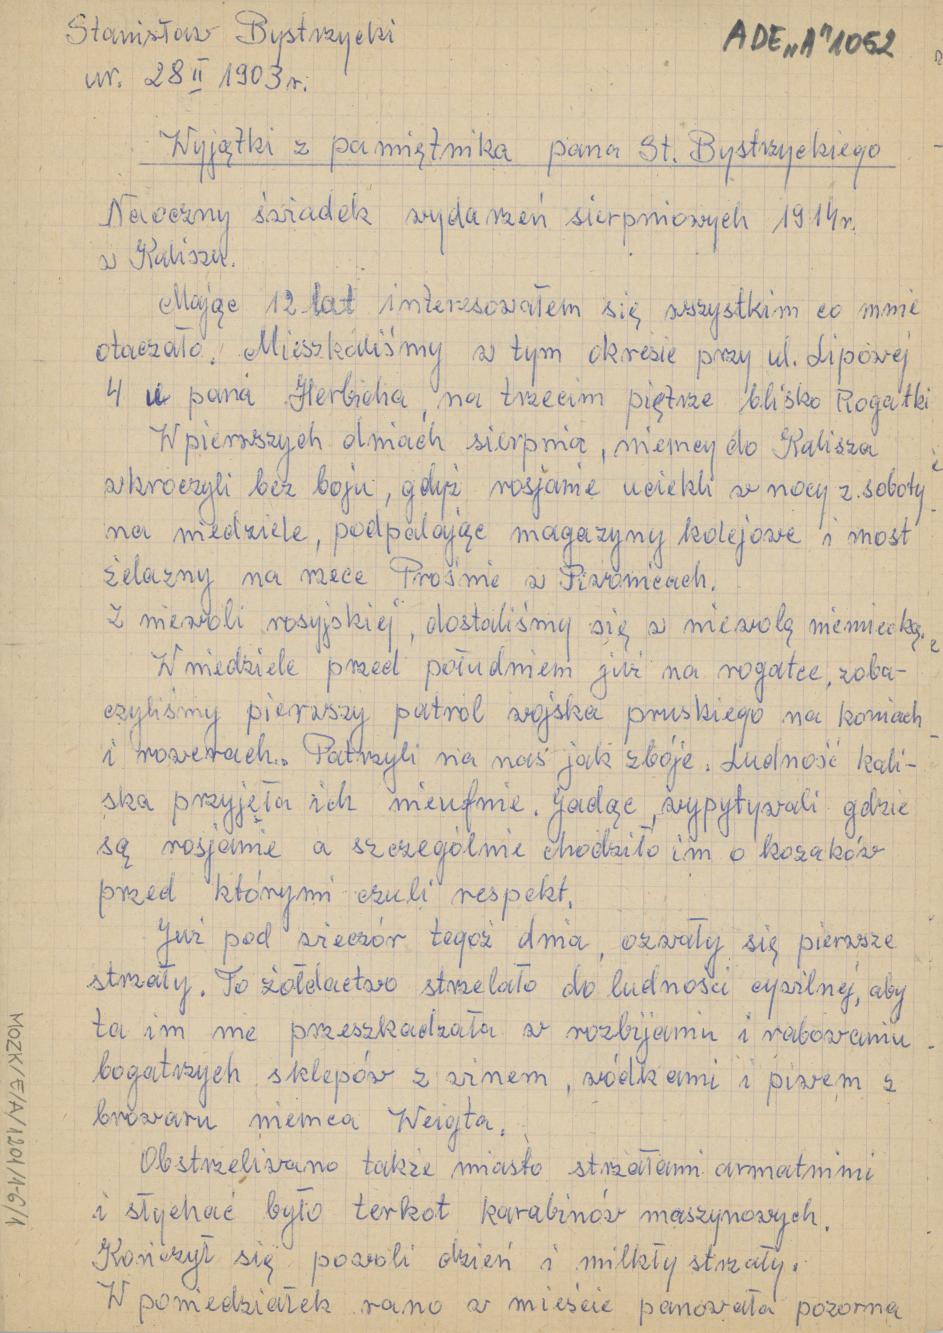 Stanisław Bystrzycki
ADE„A"1062
ur. 28 II 1903r.
Wyjątki z pamiętnika pana St. Bystrzyckiego
Naoczny świadek wydarzeń sierpniowych 1914r.
w Kaliszu.
Mając 12 lat interesowałem się wszystkim co mnie
otaczało. Mieszkaliśmy w tym okresie przy ul. Lipowej
4 u pana Herbicha, na trzecim piętrze blisko Rogatki
W pierwszych dniach sierpnia, niemcy do Kalisza
wkroczyli bez boju, gdyż rosjanie uciekli w nocy z soboty
na niedziele, podpalając magazyny kolejowe i most
żelazny na rzece Prośnie w Piwonicach.
Z niewoli rosyjskiej, dostaliśmy się w niewolą niemiecką.
W niedziele przed południem już na rogatce, zoba-
czyliśmy pierwszy patrol wojska pruskiego na koniach
i rowerach. Patrzyli na nas jak zbóje. Ludność kali-
ska przyjęła ich nieufnie. Jadąc, wypytywali gdzie
są rosjanie a szczególnie chodziło im o kozaków
przed którymi czuli respekt.
Już pod wieczór tegoż dnia, ozwały się pierwsze
strzały. To żołdactwo strzelało do ludności cywilnej, aby
ta im nie przeszkadzała w rozbijaniu i rabowaniu
bogatrzych sklepów z winem, wódkami i piwem z
browaru niemca Weigta.
Obstrzeliwano także miasto strzałami armatnimi
i słychać było terkot karabinów maszynowych.
Kończył się powoli dzień i milkły strzały.
W poniedziałek rano w mieście panowała pozorna
MOZK/E/A/1201/1-6/1